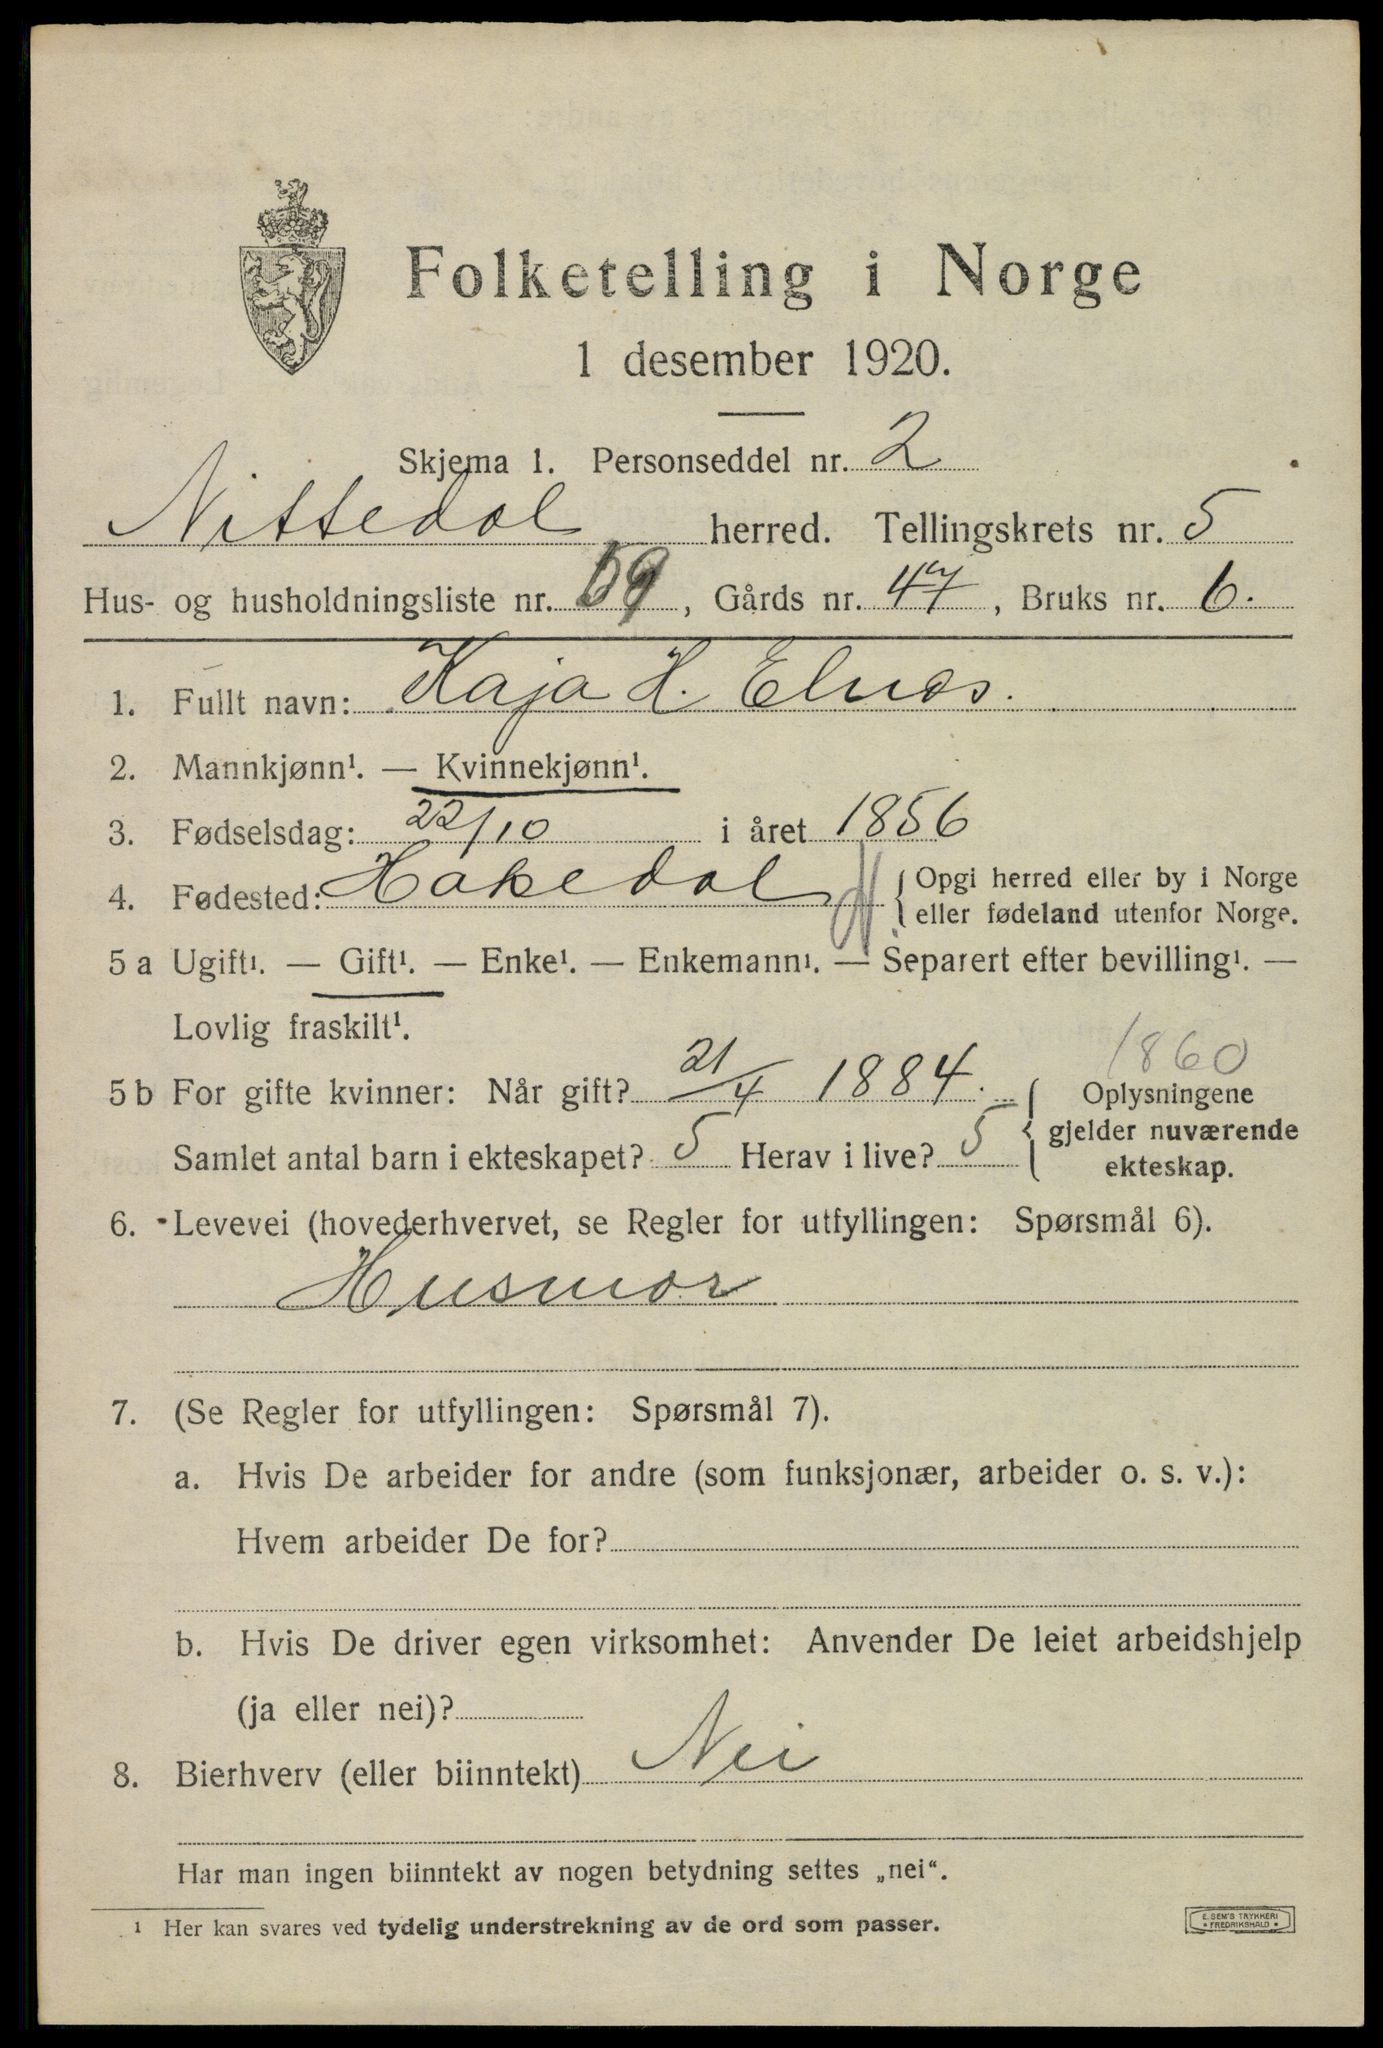 Folketelling i Norge
1 desember 1920.
Skjema 1. Personseddel nr. 2
Nittedal herred. Tellingskrets nr. 5
Hus- og husholdningsliste nr. 59, Gårds nr. 47, Bruks nr. 6.
1. Fullt navn: Kaja H. Elnæs.
2. Mannkjønn¹. — Kvinnekjønn¹.
3. Fødselsdag: 22/10 i året 1856
4. Fødested: Hakedal N. { Opgi herred eller by i Norge
eller fødeland utenfor Norge.
5 a Ugift¹. — Gift¹. — Enke¹. — Enkemann¹. — Separert efter bevilling¹. —
Lovlig fraskilt¹.
1860
5 b For gifte kvinner: Når gift? 21/4 1884. { Oplysningene
gjelder nuværende
Samlet antal barn i ekteskapet? 5 Herav i live? 5
ekteskap.
6. Levevei (hovederhvervet, se Regler for utfyllingen: Spørsmål 6).
Husmor
7. (Se Regler for utfyllingen: Spørsmål 7).
a. Hvis De arbeider for andre (som funksjonær, arbeider o. s. v.):
Hvem arbeider De for?
b. Hvis De driver egen virksomhet: Anvender De leiet arbeidshjelp
(ja eller nei)?
8. Bierhverv (eller biinntekt) Nei
Har man ingen biinntekt av nogen betydning settes „nei“.
¹ Her kan svares ved tydelig understrekning av de ord som passer.
E. SEM'S TRYKKERI
* FREDRIKSHALD *